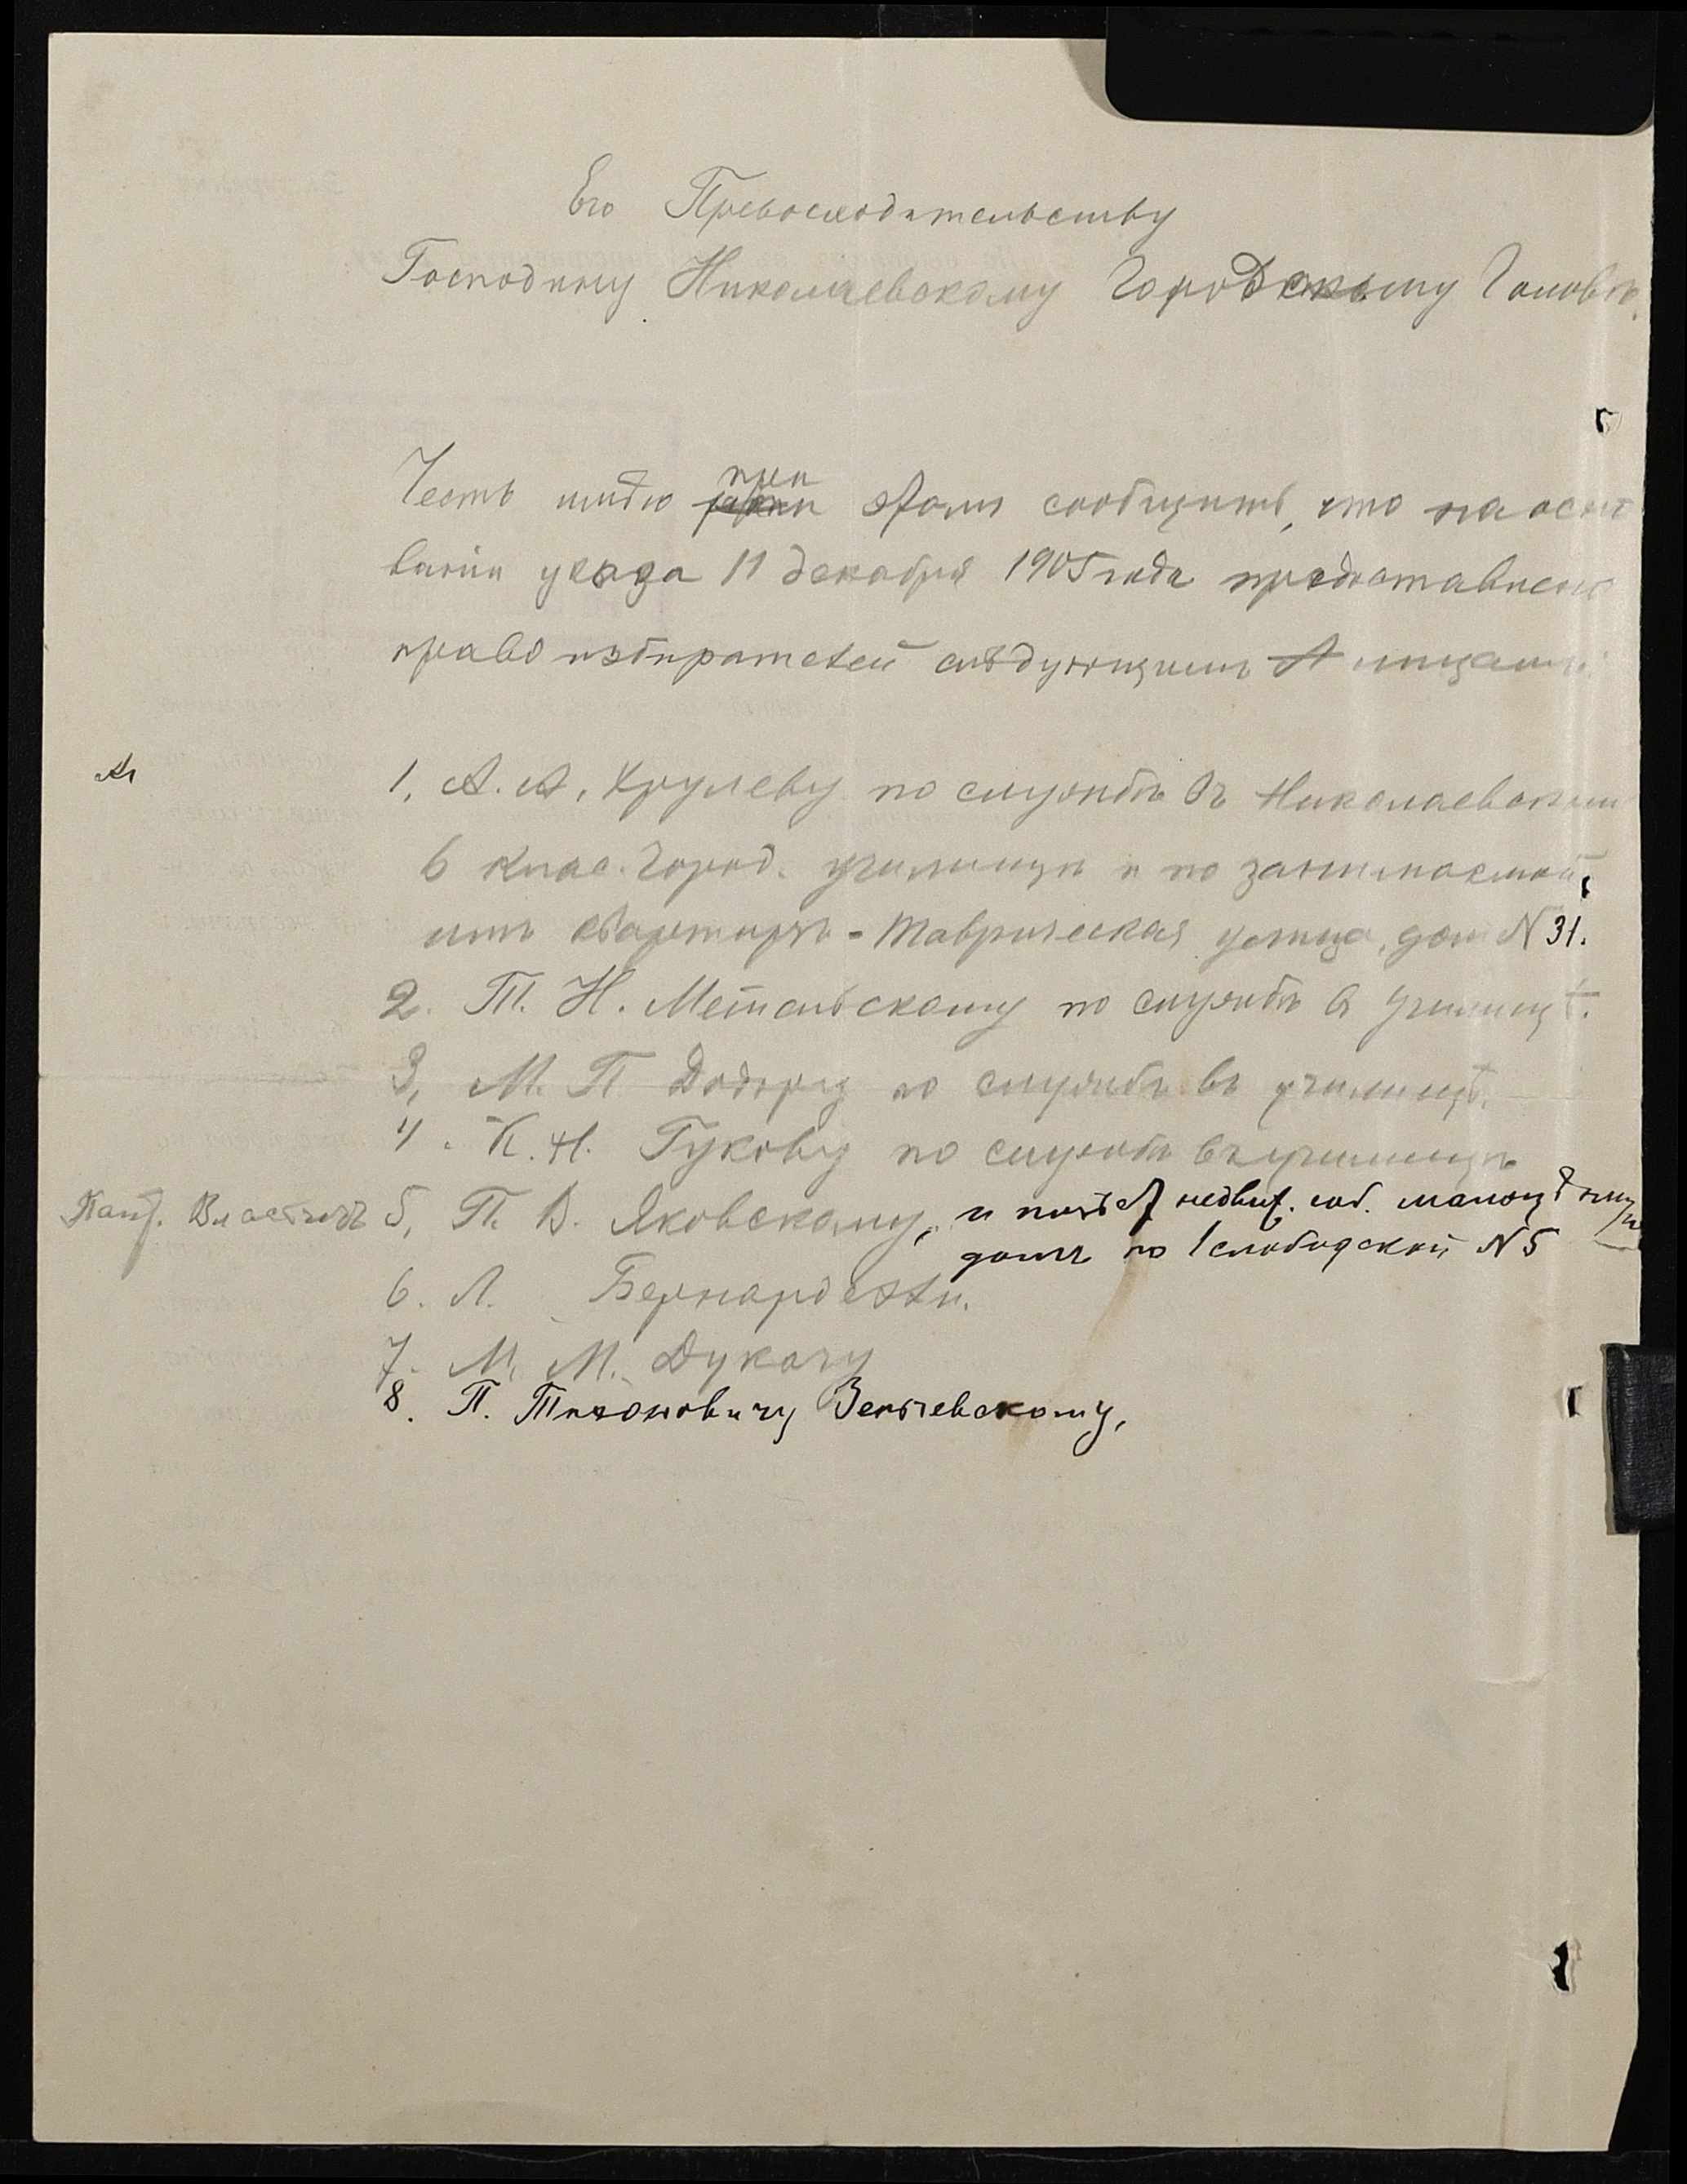 Его Превосходительству
Господину Николаевскому Городскому Головѣ.
Честь имѣю при этомъ сообщить, что на осно
ваніи указа 11 декабря 1905 года предоставлено
право избирателей слѣдующимъ лицамъ:
1, А. А. Крулеву по службѣ въ Николаевскомъ
6 клас. город. училищѣ и по занимаемой
имъ квартирѣ - Таврическая улица, домъ N 31.
2. Т. Н. Метельскому по службѣ въ училищѣ.
3, М. П. по службѣ въ училищѣ.
4. К. Н. Гукову по службѣ въ училищѣ
5, П. В. Яковскому, и недвиж.
домъ по 1 слободской N 5
6. Л. Бернардески.
7. М. М. Дукачу
8. П. Тихоновичу Зенчевскому,